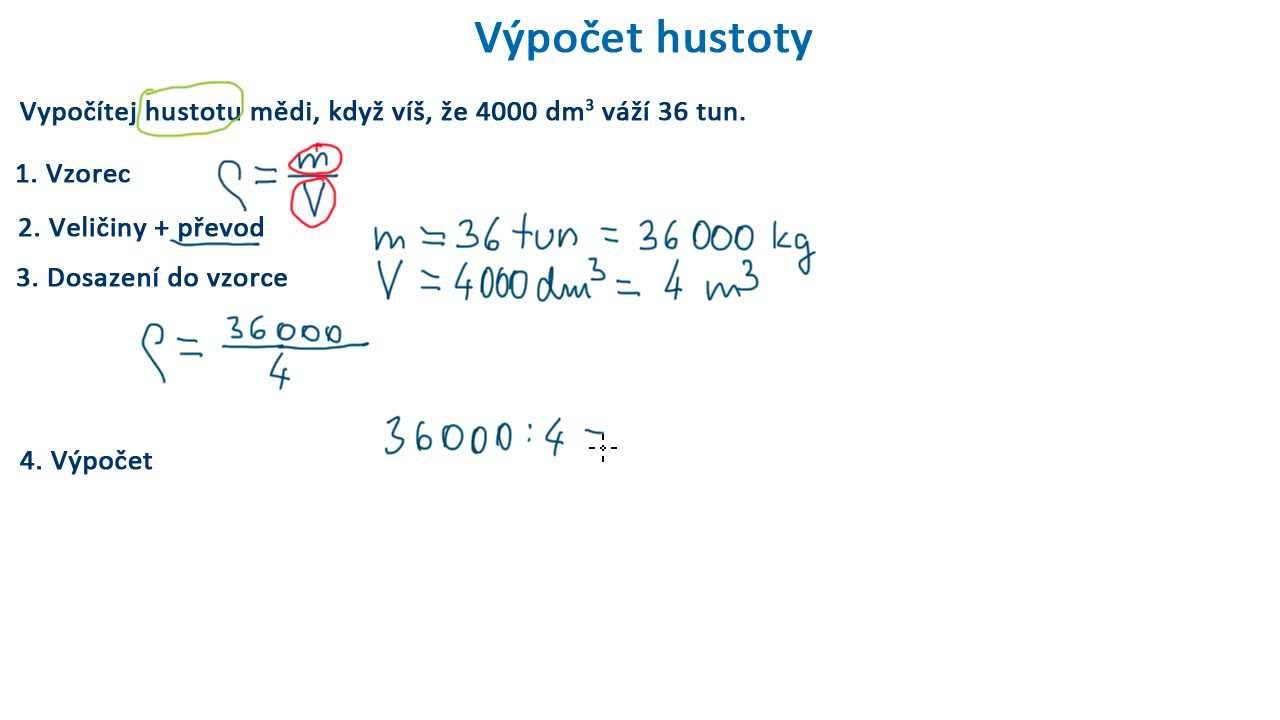 Výpočet hustoty
Vypočítej hustotu mědi, když víš, že 4000 dm³ váží 36 tun.
1. Vzorec ρ = m/V
2. Veličiny + převod
m = 36 tun = 36 000 kg
3. Dosazení do vzorce
V = 4000 dm³ = 4 m³
ρ = 36000/4
36000 : 4 =
4. Výpočet